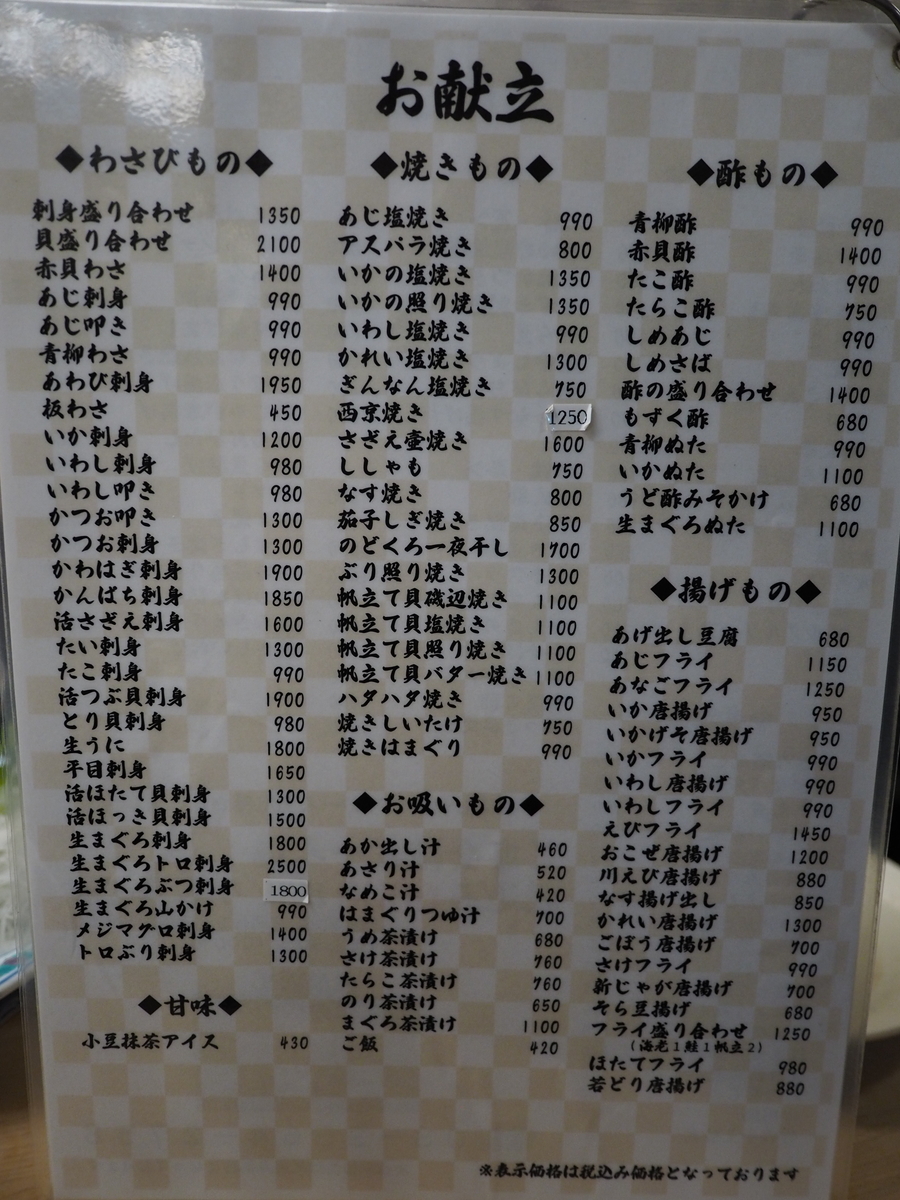 お献立
◆わさびもの◆
刺身盛り合わせ 1350
貝盛り合わせ 2100
赤貝わさ 1400
あじ刺身 990
あじ叩き 990
青柳わさ 990
あわび刺身 1950
板わさ 450
いか刺身 1200
いわし刺身 980
いわし叩き 980
かつお叩き 1300
かつお刺身 1300
かわはぎ刺身 1900
かんぱち刺身 1850
活さざえ刺身 1600
たい刺身 1300
たこ刺身 990
活つぶ貝刺身 1900
とり貝刺身 980
生うに 1800
平目刺身 1650
活ほたて貝刺身 1300
活ほっき貝刺身 1500
生まぐろ刺身 1800
生まぐろトロ刺身 2500
生まぐろぶつ刺身 1800
生まぐろ山かけ 990
メジマグロ刺身 1400
トロぶり刺身 1300
◆甘味◆
小豆抹茶アイス 430
◆焼きもの◆
あじ塩焼き 990
アスパラ焼き 800
いかの塩焼き 1350
いかの照り焼き 1350
いわし塩焼き 990
かれい塩焼き 1300
ぎんなん塩焼き 750
西京焼き 1250
さざえ壺焼き 1600
ししゃも 750
なす焼き 800
茄子しぎ焼き 850
のどくろ一夜干し 1700
ぶり照り焼き 1300
帆立て貝磯辺焼き 1100
帆立て貝塩焼き 1100
帆立て貝照り焼き 1100
帆立て貝バター焼き 1100
ハタハタ焼き 990
焼きしいたけ 750
焼きはまぐり 990
◆お吸いもの◆
あか出し汁 460
あさり汁 520
なめこ汁 420
はまぐりつゆ汁 700
うめ茶漬け 680
さけ茶漬け 760
たらこ茶漬け 760
のり茶漬け 650
まぐろ茶漬け 1100
ご飯 420
◆酢もの◆
青柳酢 990
赤貝酢 1400
たこ酢 990
たらこ酢 750
しめあじ 990
しめさば 990
酢の盛り合わせ 1400
もずく酢 680
青柳ぬた 990
いかぬた 1100
うど酢みそかけ 680
生まぐろぬた 1100
◆揚げもの◆
あげ出し豆腐 680
あじフライ 1150
あなごフライ 1250
いか唐揚げ 950
いかげそ唐揚げ 950
いかフライ 990
いわし唐揚げ 990
いわしフライ 990
えびフライ 1450
おこぜ唐揚げ 1200
川えび唐揚げ 880
なす揚げ出し 850
かれい唐揚げ 1300
ごぼう唐揚げ 700
さけフライ 990
新じゃが唐揚げ 700
そら豆揚げ 680
フライ盛り合わせ 1250
（海老１鮭１帆立２）
ほたてフライ 980
若どり唐揚げ 880
※表示価格は税込み価格となっております